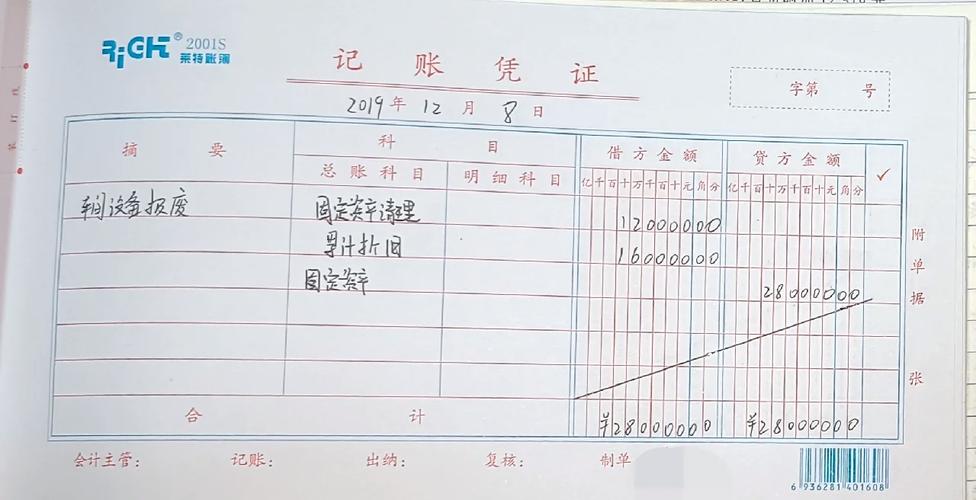 RiGHT® 2001S
莱特账簿
记账凭证
字第 号
2019年12月8日
摘要 科目 借方金额 贷方金额 ✓
总账科目 明细科目 亿千百十万千百十元角分 亿千百十万千百十元角分
车间设备报废 固定资产清理 12000000
累计折旧 16000000
固定资产 28000000
附单据 张
合计 ¥28000000 ¥28000000
会计主管: 记账: 出纳: 复核: 制单
6 936281 401608